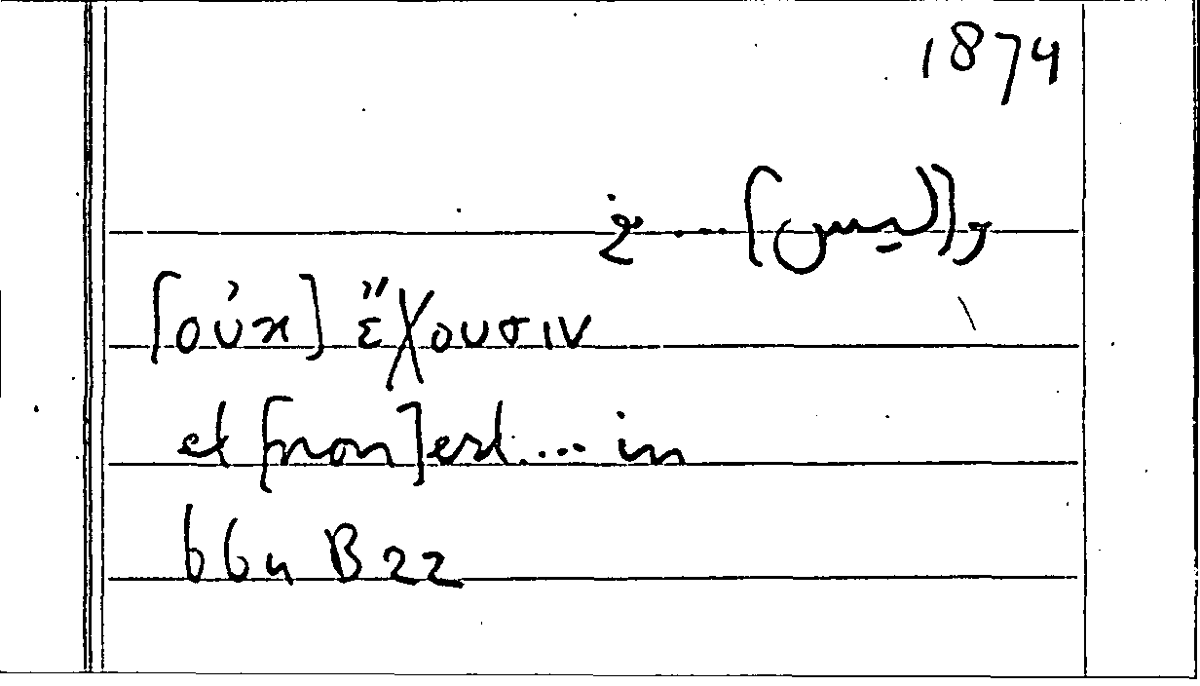 1874
و[ليس] ... في
[οὐκ] ἔχουσιν
et [non] est ... in
664 B 22